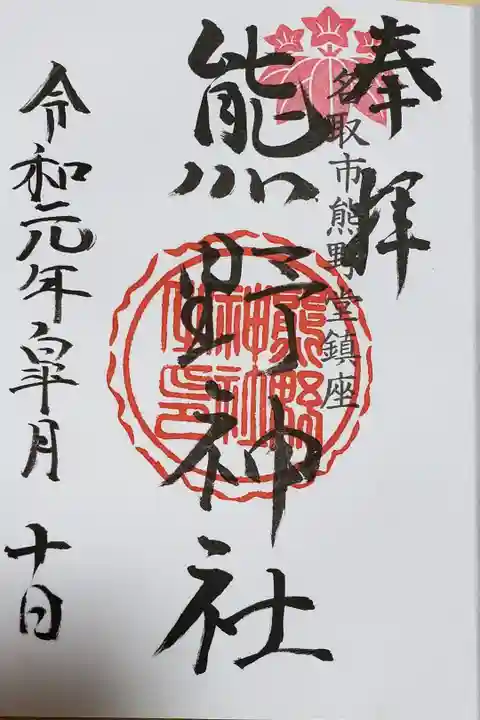 奉拝
名取市熊野堂鎮座
熊野神社
熊野
神社
印
令和元年皐月十日